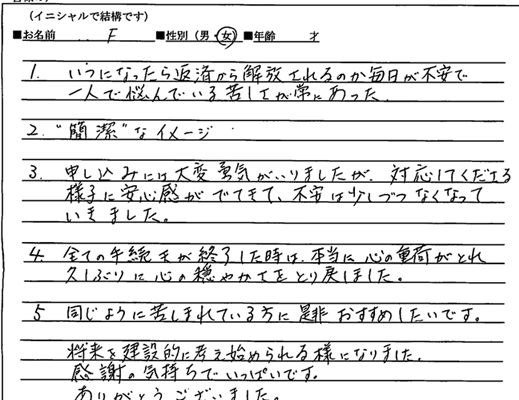 (イニシャルで結構です)
■お名前 F ■性別(男・女) ■年齢 才
1. いつになったら返済から解放されるのか毎日が不安で
一人で悩んでいる苦しさが常にあった.
2. "簡潔"なイメージ
3. 申し込みには大変勇気がいりましたが、対応してくださる
様子に安心感がでてきて、不安は少しづつなくなって
いきました。
4. 全ての手続きが終了した時は、本当に心の重荷がとれ
久しぶりに心の穏やかさをとり戻しました。
5 同じように苦しまれている方に是非おすすめしたいです。
将来を建設的に考え始められる様になりました.
感謝の気持ちでいっぱいです。
ありがとうございました。